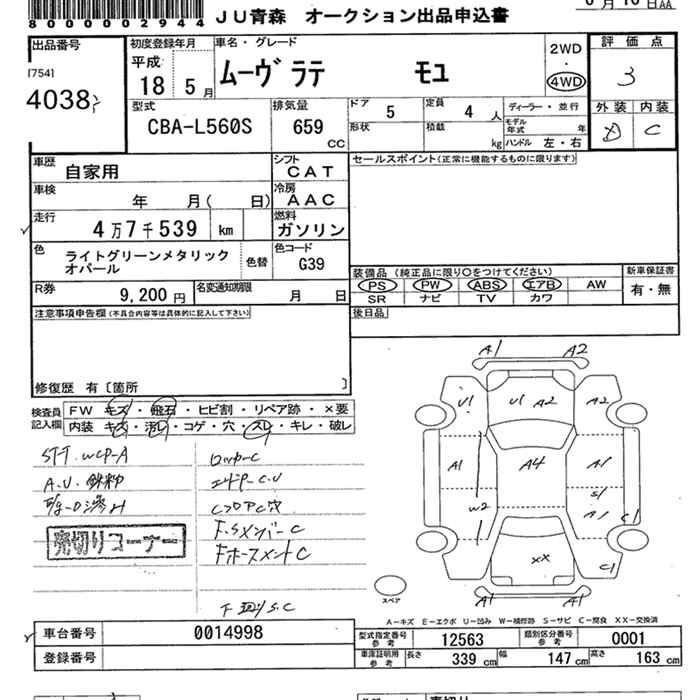 800000002944
JU青森 オークション出品申込書
6月10日AA
出品番号
[754]
4038
初度登録年月
平成
18 5月
車名・グレード
ムーヴ ラテ モユ
2WD
・
4WD
評価点
3
外装 内装
D C
型式
CBA-L560S
排気量
659 CC
ドア 5
定員 4 人
ディーラー・並行
形状
積載 kg
モデル年式 年
ハンドル 左・右
車歴
自家用
シフト
CAT
車検
年 月( 日)
冷房
AAC
走行
4万7千539 km
燃料
ガソリン
色
ライトグリーンメタリック
オパール
色替
色コード
G39
R券
9,200円
名変通知期限
月 日
セールスポイント(正常に機能するものに限ります)
装備品 (純正品に限り○をつけてください)
新車保証書
PS PW ABS エアB AW
有・無
SR ナビ TV カワ
後日品
注意事項申告欄(不具合内容等は具体的に記入して下さい)
修復歴 有〔箇所 〕
検査員
記入欄
FW キズ・飛石・ヒビ割・リペア跡・×要
内装 キズ・汚レ・コゲ・穴・スレ・キレ・破レ
A.U.鉄粉
ロッカーC
F.SメンバーC
売切りコーナー
下廻りS.C
A1 A2
U1 U1 A2 A2
A1 A4 A1
W2 S1
A1 C1
XX C1
A1 A1
スペア
A-キズ E-エクボ U-凹み W-補修跡 S-サビ C-腐食 XX-交換済
車台番号
0014998
登録番号
型式指定番号
参考
12563
類別区分番号
参考
0001
車庫証明用
参考
長さ 339 cm
幅 147 cm
高さ 163 cm